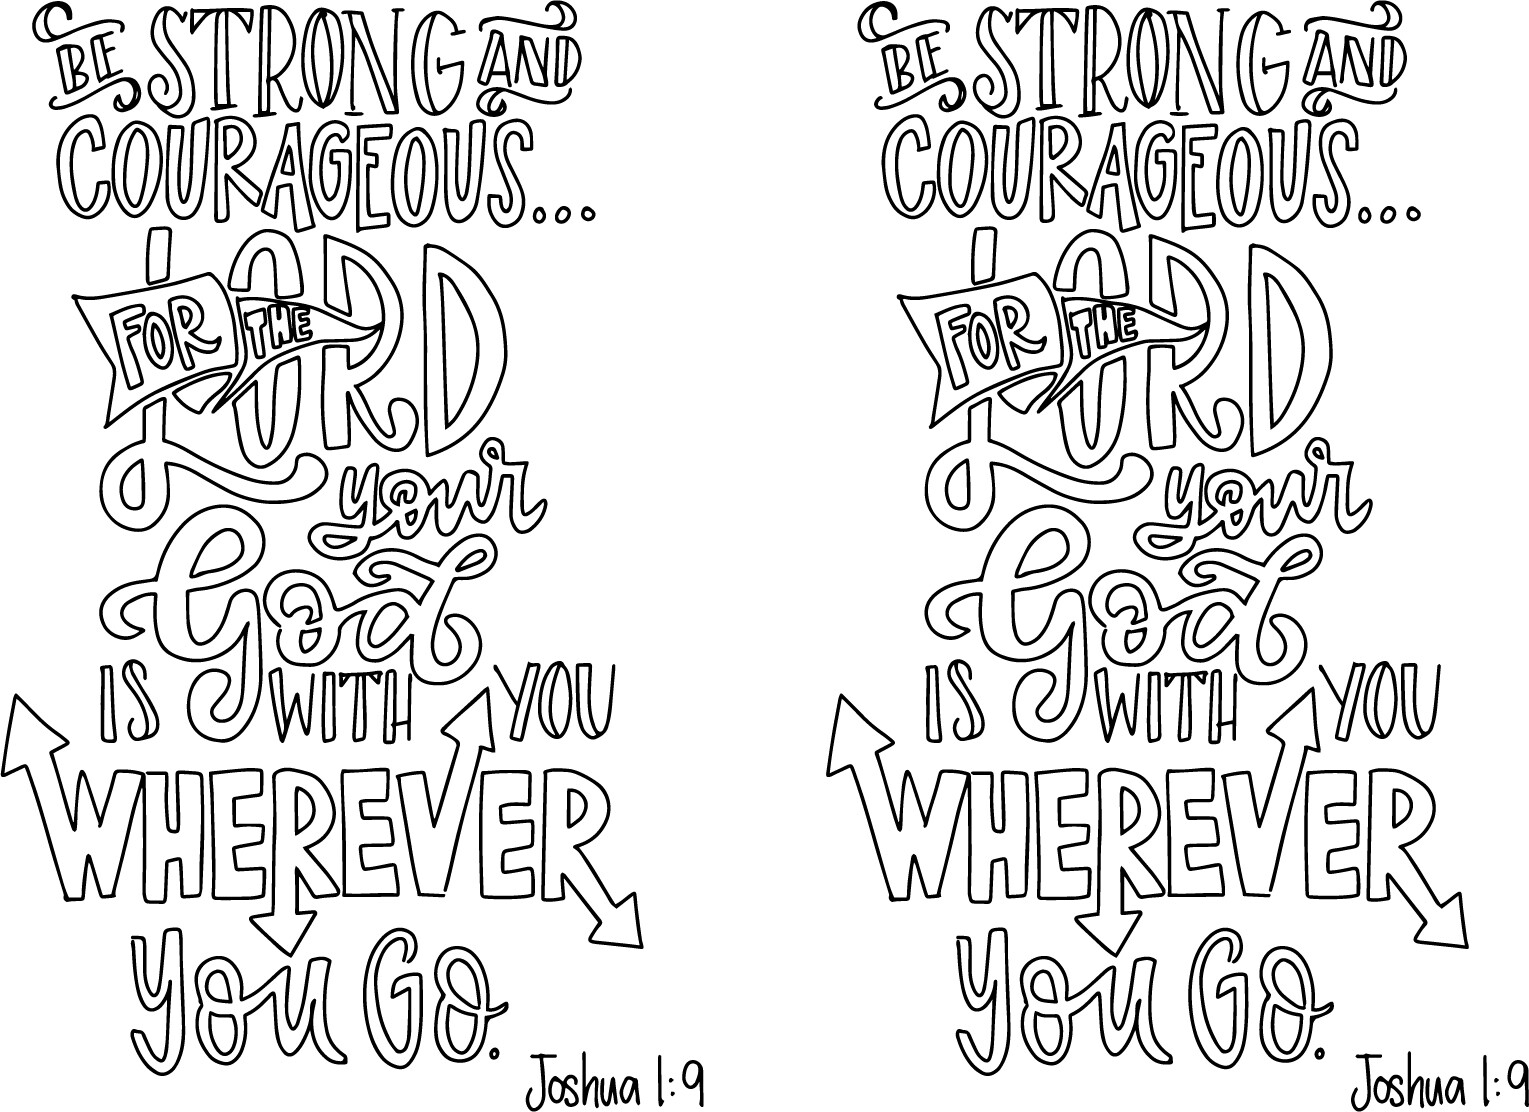 BE STRONG AND
COURAGEOUS...
FOR THE
LORD
your
God
IS WITH YOU
WHEREVER
YOU GO.
Joshua 1:9
BE STRONG AND
COURAGEOUS...
FOR THE
LORD
your
God
IS WITH YOU
WHEREVER
YOU GO.
Joshua 1:9